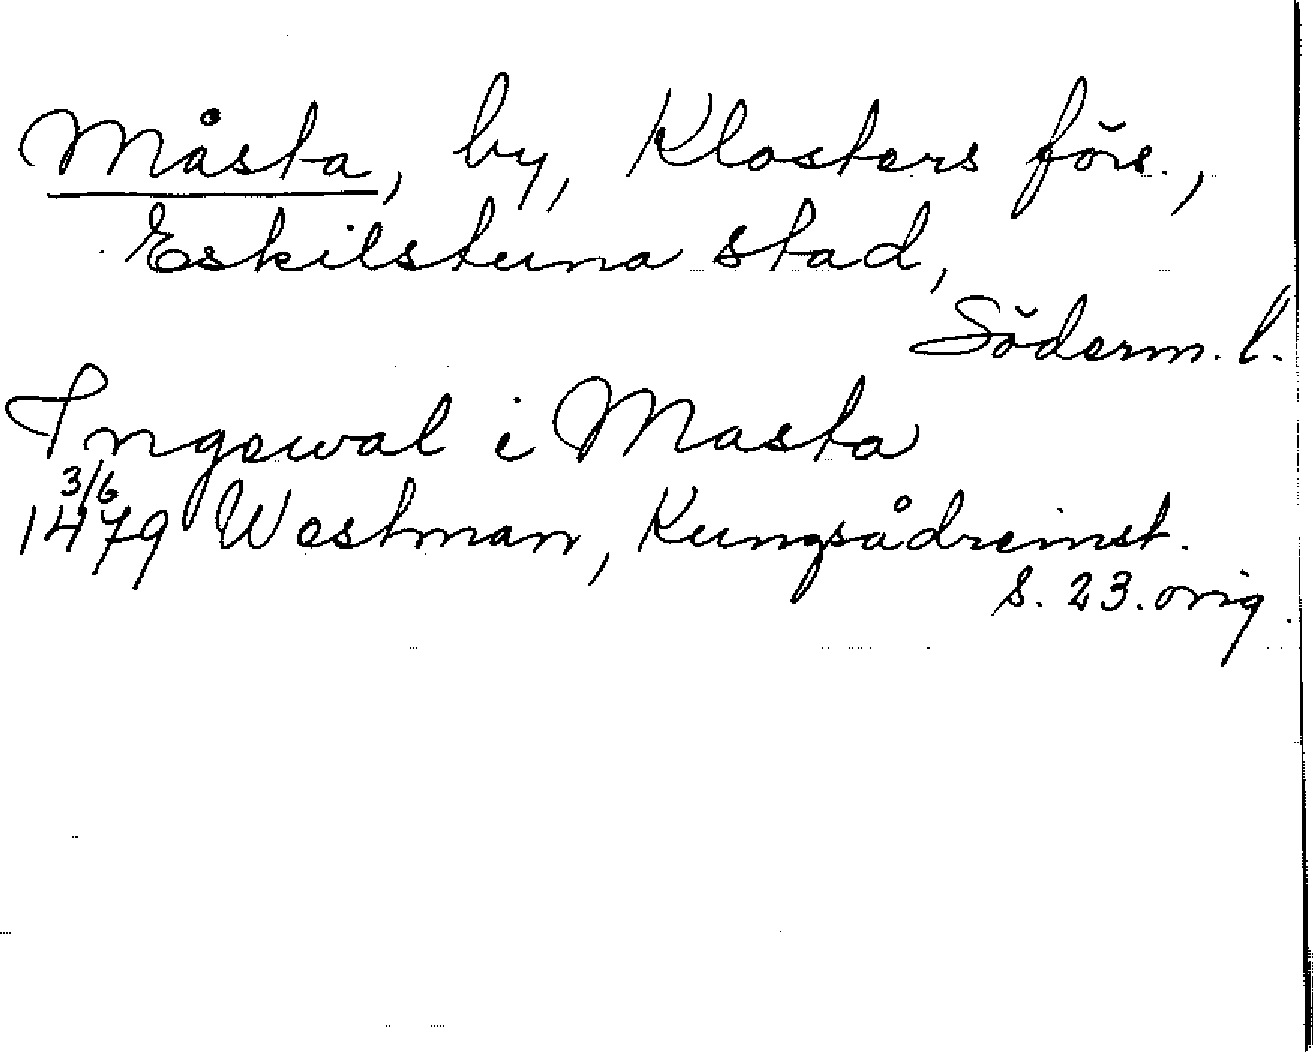 Måsta, by, Klosters förs.,
Eskilstuna stad,
Söderm. l.
Ingewal i Masta
3/6
1479 Westman, Kungsådreinst.
s. 23. orig.